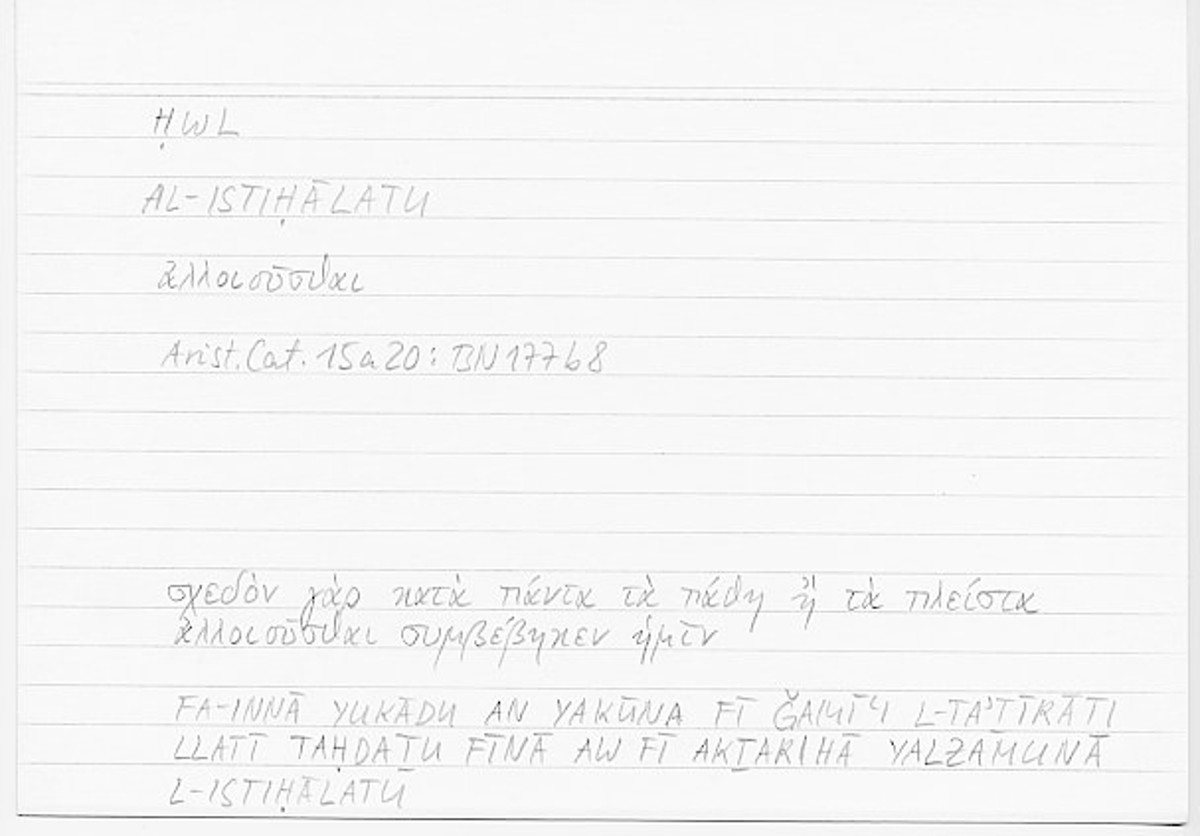 ḤWL
AL-ISTIḤĀLATU
ἀλλοιοῦσθαι
Arist. Cat. 15a20: BN 177b8
σχεδὸν γὰρ κατὰ πάντα τὰ πάθη ἢ τὰ πλεῖστα
ἀλλοιοῦσθαι συμβέβηκεν ἡμῖν
FA-INNĀ YUKĀDU AN YAKŪNA FĪ ǦAMĪʿI L-TAʾṮĪRĀTI
LLATĪ TAḤDAṮU FĪNĀ AW FĪ AKṮARIHĀ YALZAMUNĀ
L-ISTIḤĀLATU